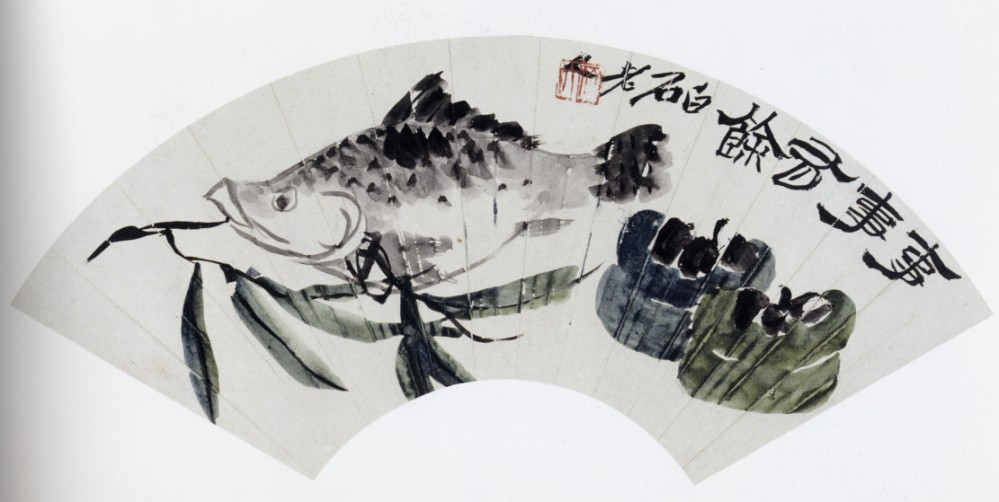 事事有餘
白石老人